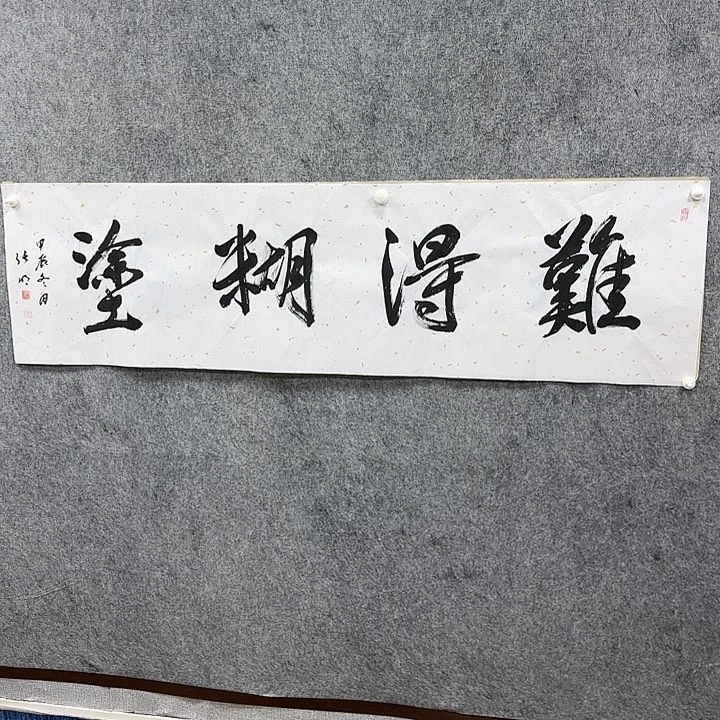 難得糊塗
甲辰冬月